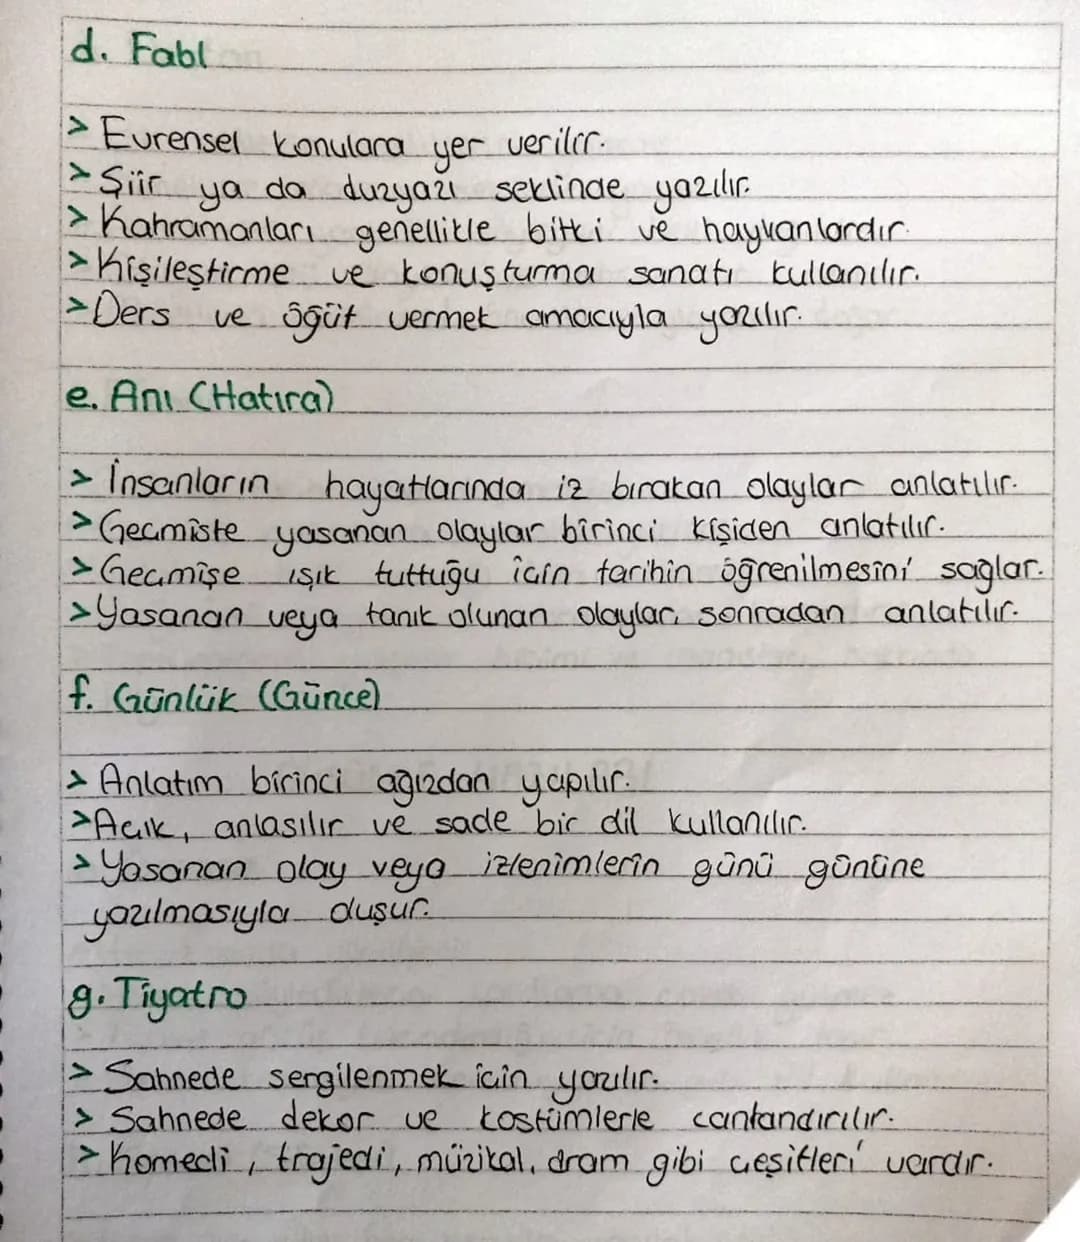 d. Fabl
> Evrensel konulara yer verilir.
> Şiir ya da düzyazı seklinde yazılır.
> Kahramanları genellikle bitki ve hayvanlardır.
> Kişileştirme ve konuşturma sanatı kullanılır.
> Ders ve öğüt vermek amacıyla yazılır.
e. Anı (Hatıra)
> İnsanların hayatlarında iz bırakan olaylar anlatılır.
> Geçmiste yasanan olaylar birinci kişiden anlatılır.
> Geçmişe ışık tuttuğu için tarihin öğrenilmesini sağlar.
> Yasanan veya tanık olunan olaylar, sonradan anlatılır.
f. Günlük (Günce)
> Anlatım birinci ağızdan yapılır.
> Açık, anlasılır ve sade bir dil kullanılır.
> Yasanan olay veya izlenimlerin günü gününe
yazılmasıyla oluşur.
g. Tiyatro
> Sahnede sergilenmek için yazılır.
> Sahnede dekor ve kostümlerle canlandırılır.
> Komedi, trajedi, müzikal, dram gibi çeşitleri vardır.